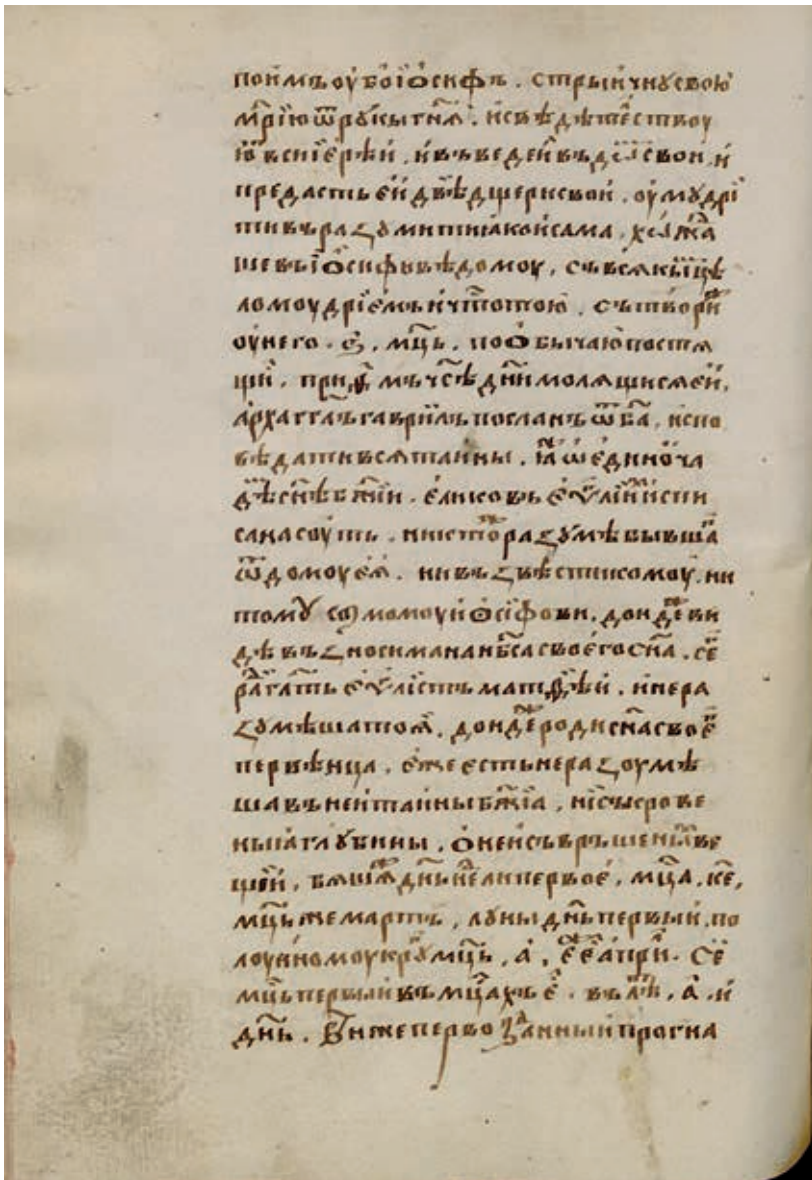 поимъ оубо іѡсифъ . стрыичнꙋ свою
мр҃ію ѿ рꙋкы гнѧ̀ . исвѣдѣтествоу
ющ всиіерѣи . ивъведеи въ дѡ свои . и
предастьеи двѣ дщери свои . оумꙋдрі
тивъ раꙁꙋмити ꙗкоисама . хѡжⷣа
шевъ іѡсифовѣ домоу , съ всѧкы цѣ
ломоудріемъ ичтⷭотою . сътвориⷤ
оу него . ѕ҃ . мцⷭь . по ѡбычаю постѧ
щи .
архагг҃лъ гавріилъ посланъ ѿ ба҃ . испо
вѣдати всѧ таины . ꙗⷤ ѡ единоⷨ ча
дѣ сн҃ѣ бж҃іи . елико въ еѵⷢ҇ліи испи
сана соуть . никтоⷤ раꙁꙋмѣ бывша
ѿ домоу еѧ̀ . ни въꙁвѣсти комоу . ни
томꙋ самомоу іѡсифови . дондеⷤ ви
дѣ въꙁносима на нб҃са своего сн҃а . се
еѵⷢ҇лістъ матѳѣи . и нера
ꙁꙋмѣша тоѧ̀ . дондеⷤ роди сн҃а своеⷢ
первѣнца . еже есть нераꙁоумѣ
ша въ неи таины бж҃іа , и съкрове
ныꙗ глꙋбины . ѡ неи съвръшеныⷯ ве
щеи , бѧшеⷤ дн҃ь нлⷣѣли первое , мцⷭа . ке ,
мцⷭь же мартъ , лоуны дн҃ь первыи . по
мцⷭь , а҃ , априⷧ . Се
мцⷭь первыи въ мцⷭахъ еⷭ . въ лѣⷮ , а҃ . и
дн҃ь . Вниже первоꙁданныи прогна